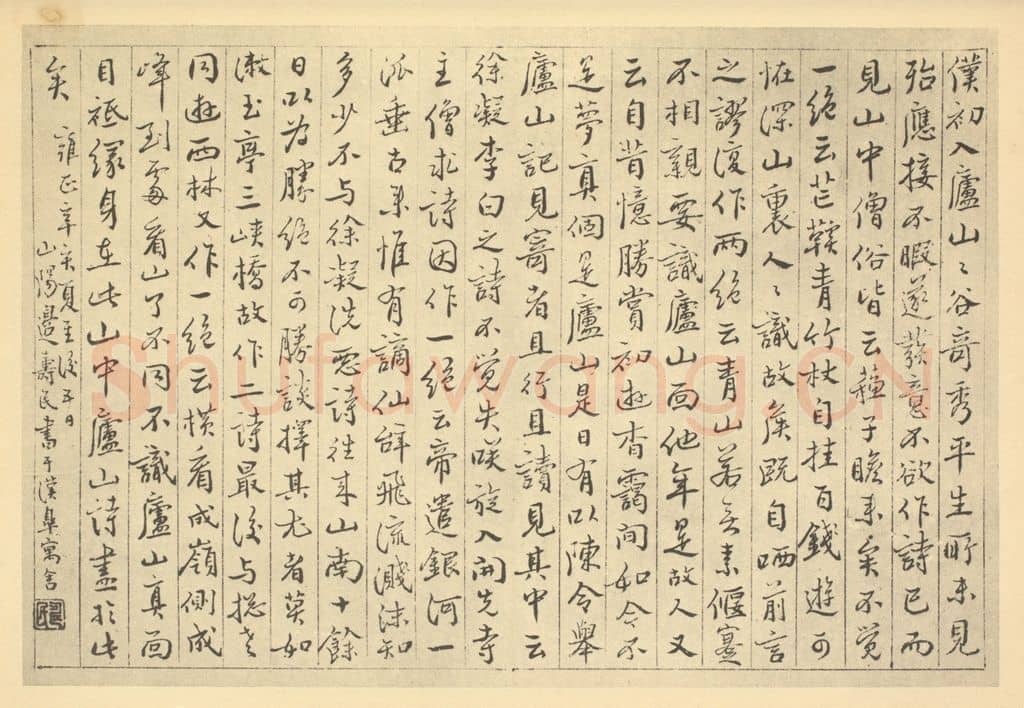 僕初入廬山々谷奇秀平生所未見
殆應接不暇遂發意不欲作詩已而
見山中僧俗皆云蘇子瞻来矣不覺
一絶云芒鞵青竹杖自挂百錢遊可
怪深山裏人々識故矦既自哂前言
之謬復作兩絶云青山若无素偃蹇
不相親要識廬山面他年是故人又
云自昔憶勝賞初遊杳靄間如今不
是夢真個是廬山是日有以陳令舉
廬山記見寄者且行且讀見其中云
徐凝李白之詩不覺失咲旋入開先寺
主僧求詩因作一絶云帝遣銀河一
派垂古来惟有謫仙辭飛流濺沫知
多少不与徐凝洗惡詩往来山南十餘
日以為勝絶不可勝談擇其尤者莫如
漱玉亭三峽橋故作二詩最後与摠老
同遊西林又作一絶云横看成嶺側成
峰到處看山了不同不識廬山真面
目衹縁身在此山中廬山詩盡於此
矣 雍正辛亥夏至後五日
山陽邊壽民書于漢皋寓舍
Shufawang.CN